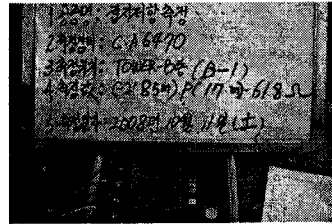 1. 공종명: 접지저항측정
2. 측정기: CA6470
3. 측정위치: Tower-6동 (B-1)
4. 측정값: C( 85m) P( 17 m) 618Ω
5. 측정일자: 2008년 10월 11일(土)